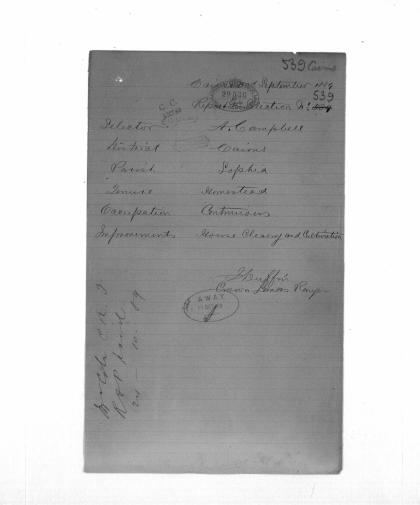 539 Cairns
Cairns 2nd September 1889
Report Selection No 539
Selector A. Campbell
District Cairns
Parish Sophia
Tenure Homestead
Occupation Continuous
Improvements House Clearing and Cultivation
Crown Lands Ranger
AWAY
R & P paid
24 - 10 - 89